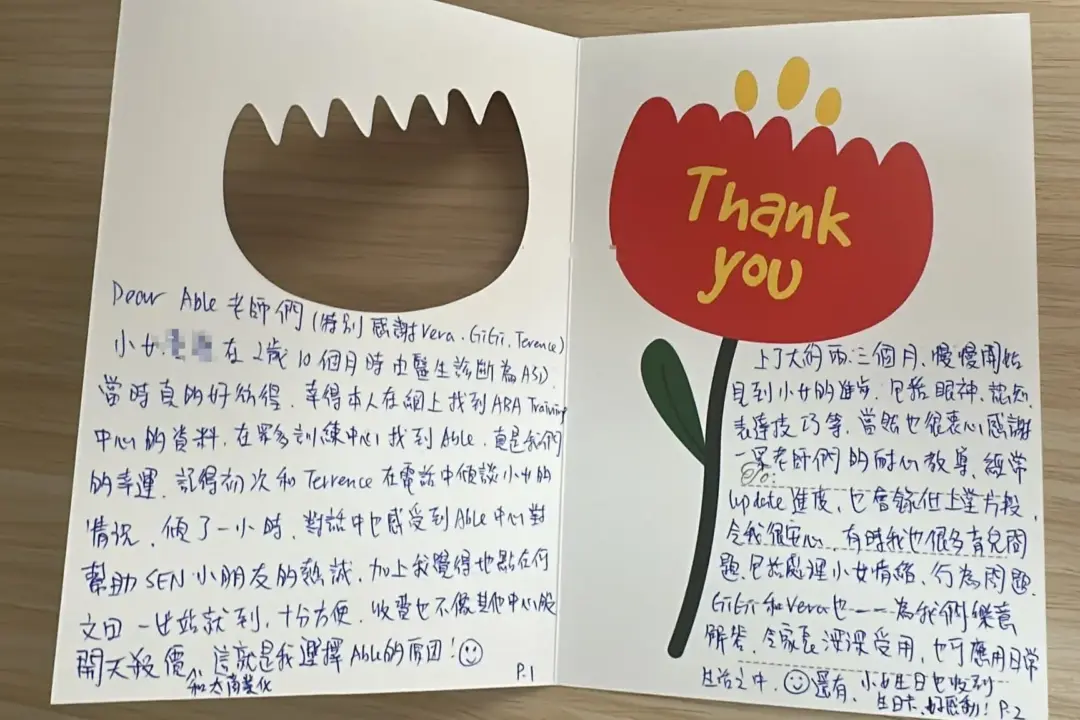 Dear Able 老師們 (特別感謝Vera、GiGi、Terence)
小女 在2歲10個月時由醫生診斷為ASD.
當時真的好徬徨、幸得本人在網上找到ABA Training
中心的資料, 在眾多訓練中心找到Able, 真是我們
的幸運, 記得初次和Terrence在電話中傾談小女的
情況, 傾了一小時, 對話中也感受到Able中心對
幫助SEN小朋友的熱誠, 加上我覺得地點在何
文田一出站就到, 十分方便, 收費也不像其他中心般
開天殺價 和太商業化, 這就是我選擇Able的原因! ☺
P.1
Thank
you
上了大約兩、三個月, 慢慢開始
見到小女的進步, 包括眼神、認知、
表達技巧等, 當然也很衷心感謝
一眾老師們的耐心教導, 經常
update進度, 也會錄低上堂片段,
令我很安心, 有時我也很多育兒問
題, 包括處理小女情緒、行為問題,
GiGi和Vera也一一為我們樂意
解答, 令家長深深受用, 也可應用日常
生活之中, ☺ 還有, 小女生日也收到
生日卡, 好感動! P.2